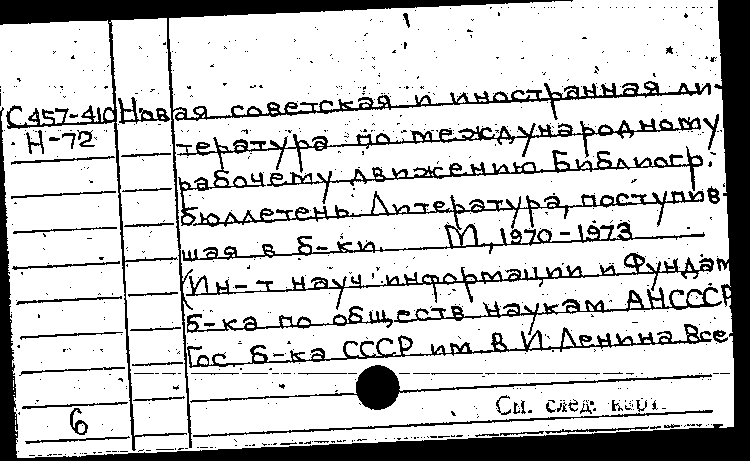 С457-410 Новая советская и иностранная ли-
Н-72 тература по международному
рабочему движению. Библиогр.
бюллетень. Литература, поступив-
шая в б-ки. М., 1970-1973
(Ин-т науч. информации и Фундам
б-ка по обществ наукам АНСССР
Гос. б-ка СССР им В И. Ленина Все-
См. след. карт.
6